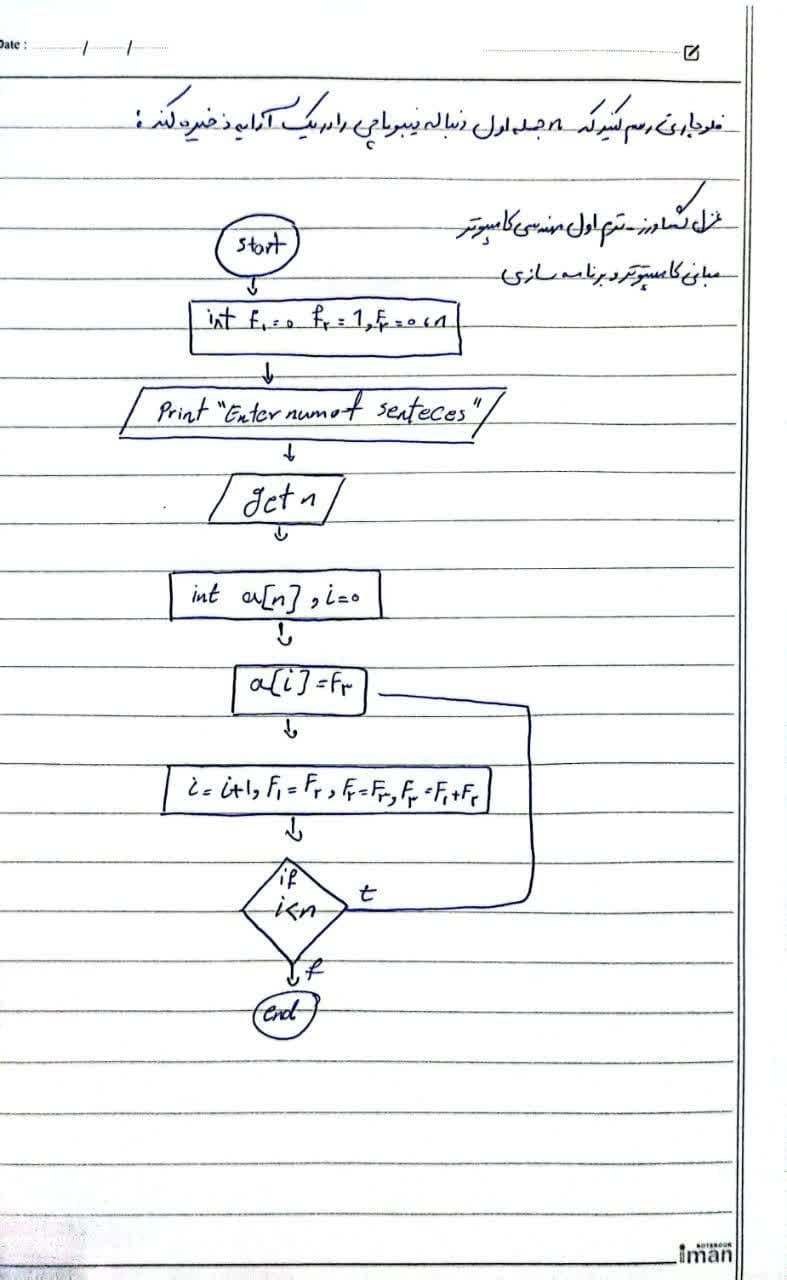 Date : / /
فلوچارتی رسم کنید که n جمله اول دنباله فیبوناچی را در یک آرایه ذخیره کند :
غزل کشاورز - ترم اول مهندسی کامپیوتر
مبانی کامپیوتر و برنامه سازی
start
int F₁=0 F۲=1, F۳=0, n
Print "Enter num of senteces"
get n
int a[n], i=0
a[i]=F۳
i=i+1, F₁=F۲, F۲=F۳, F۳=F₁+F۲
if
i<n
t
f
end
NOTEBOOK
iman